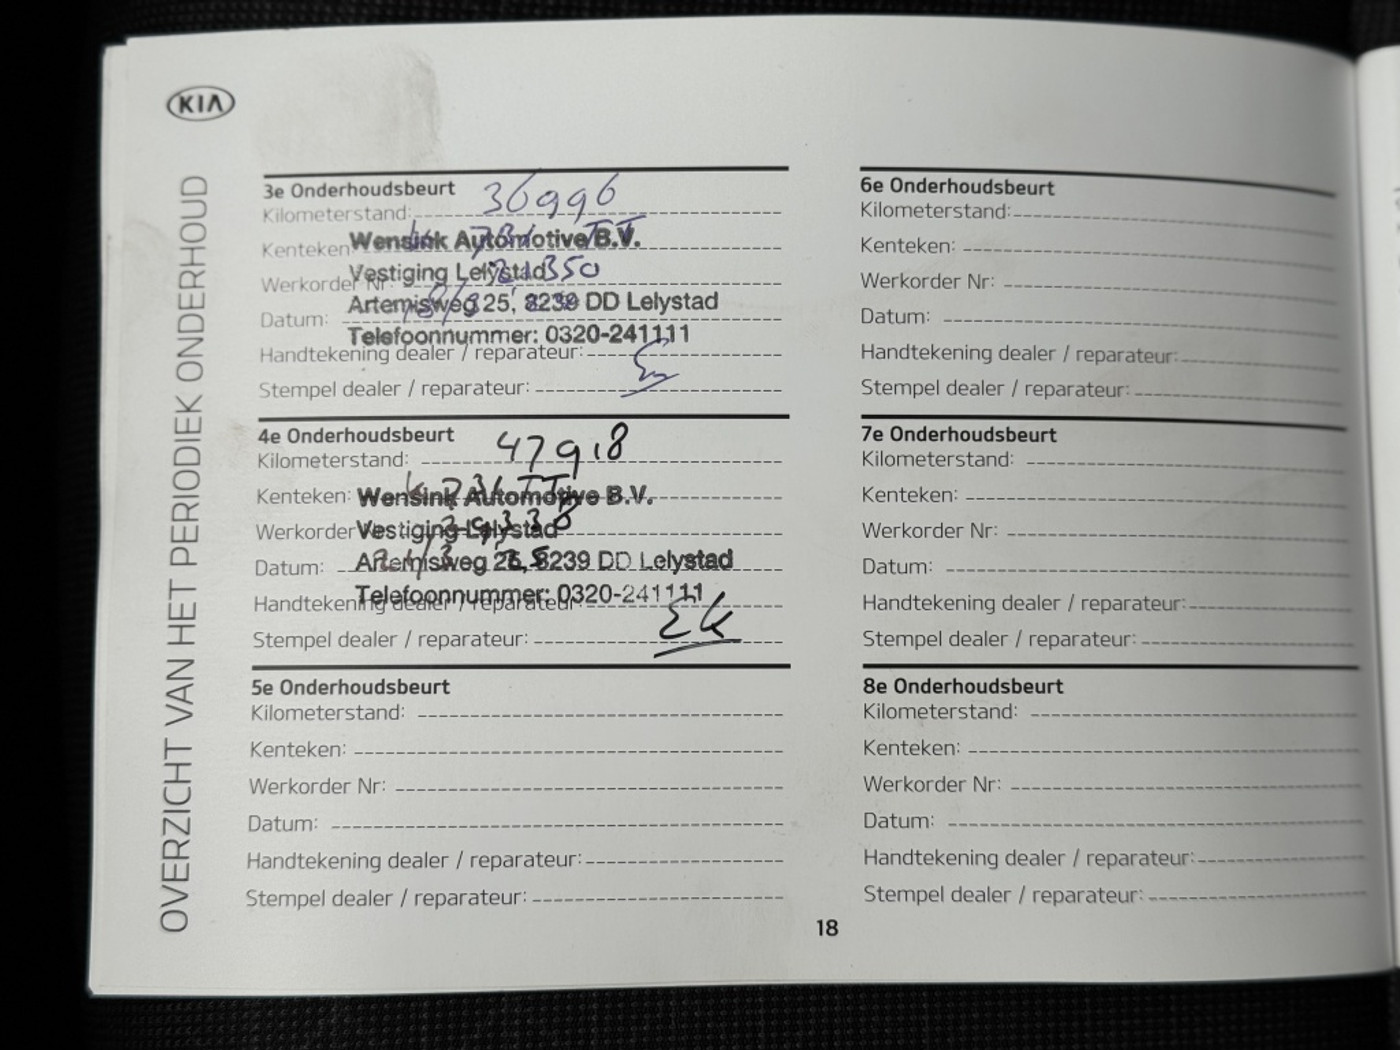 KIA
OVERZICHT VAN HET PERIODIEK ONDERHOUD
3e Onderhoudsbeurt
Kilometerstand: 36996
Kenteken
Wensink Automotive B.V.
Werkorder Nr:
Vestiging Lelystad
Artemisweg 25, 8239 DD Lelystad
Datum:
Telefoonnummer: 0320-241111
Handtekening dealer / reparateur:
Stempel dealer / reparateur:
4e Onderhoudsbeurt
Kilometerstand: 47918
Kenteken:
Wensink Automotive B.V.
Werkorder
Vestiging Lelystad
Datum:
Artemisweg 25, 8239 DD Lelystad
Telefoonnummer: 0320-241111
Handtekening dealer / reparateur:
Stempel dealer / reparateur:
5e Onderhoudsbeurt
Kilometerstand:
Kenteken:
Werkorder Nr:
Datum:
Handtekening dealer / reparateur:
Stempel dealer / reparateur:
6e Onderhoudsbeurt
Kilometerstand:
Kenteken:
Werkorder Nr:
Datum:
Handtekening dealer / reparateur:
Stempel dealer / reparateur:
7e Onderhoudsbeurt
Kilometerstand:
Kenteken:
Werkorder Nr:
Datum:
Handtekening dealer / reparateur:
Stempel dealer / reparateur:
8e Onderhoudsbeurt
Kilometerstand:
Kenteken:
Werkorder Nr:
Datum:
Handtekening dealer / reparateur:
Stempel dealer / reparateur:
18